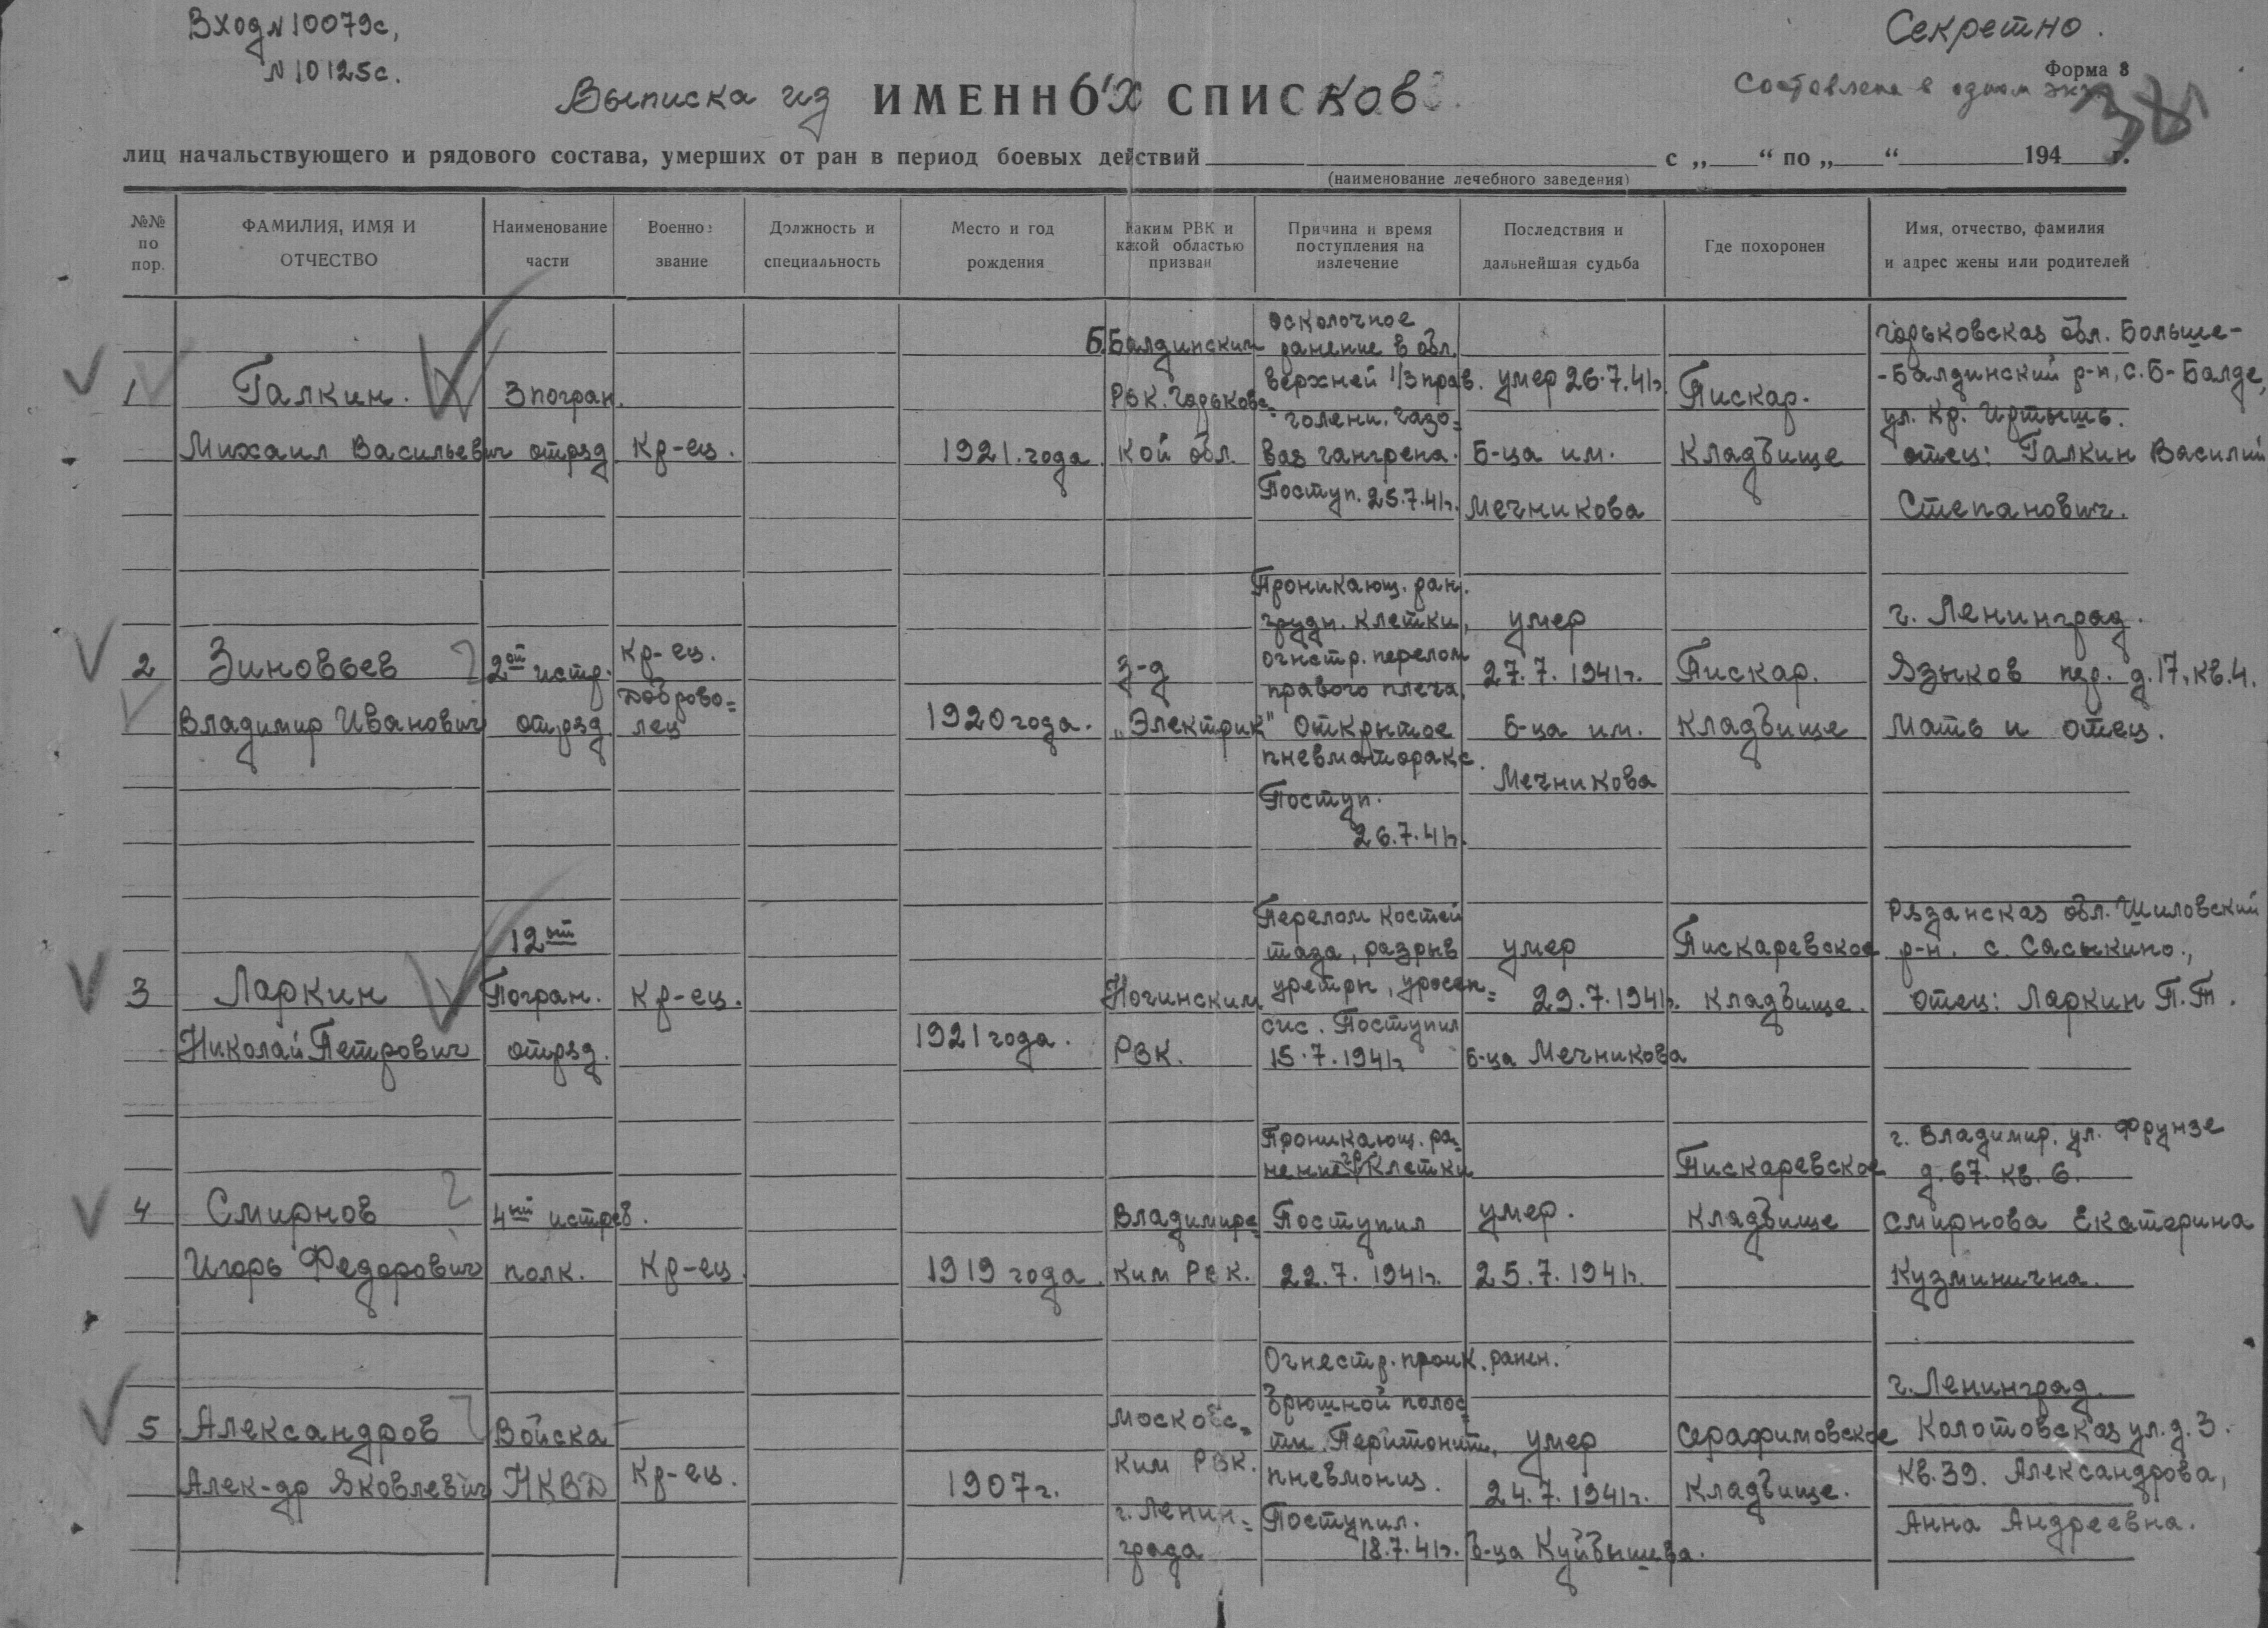 Вход N 10079с,
N 10125с.
Секретно.
Форма 8
Составлена в одном экз.
Выписка из ИМЕННЫХ СПИСКОВ
лиц начальствующего и рядового состава, умерших от ран в период боевых действий с „ “ по „ “ 194 г.
(наименование лечебного заведения)
№№ по пор.
ФАМИЛИЯ, ИМЯ И ОТЧЕСТВО
Наименование части
Военное звание
Должность и специальность
Место и год рождения
Каким РВК и какой областью призван
Причина и время поступления на излечение
Последствия и дальнейшая судьба
Где похоронен
Имя, отчество, фамилия и адрес жены или родителей
1
Галкин.
Михаил Васильевич
3 погран.
отряд
Кр-ец.
1921. года
Б.Балдинским
РВК. Горьковс=
кой обл.
осколочное
ранение в обл.
верхней 1/3 прав.
голени. Газо=
вая гангрена.
Поступ. 25.7.41г.
умер 26.7.41г.
Б-ца им.
Мечникова
Пискар.
Кладбище
Горьковская обл. Больше-
-Балдинский р-н, с. Б-Балде,
ул. Кр. Иртышь.
отец: Галкин Василий
Степанович.
2
Зиновьев
Владимир Иванович
2ой истр.
отряд
Кр-ец.
Доброво=
лец
1920 года.
З-д
„Электрик"
Проникающ. ран.
грудн. клетки,
огнестр. перелом
правого плеча,
Открытое
пневматоракс.
Поступ.
26.7.41г.
умер
27.7.1941г.
Б-ца им.
Мечникова
Пискар.
Кладбище
г. Ленинград.
Языков пер. д.17, кв.4.
Мать и отец.
3
Ларкин
Николай Петрович
12ый
Погран.
отряд.
Кр-ец.
1921 года.
Ногинским
РВК.
Перелом костей
таза, разрыв
уретры, уросеп=
сис. Поступил
15.7.1941г
умер
29.7.1941г.
Б-ца Мечникова
Пискаревское
Кладбище.
Рязанская обл. Шиловский
р-н. с. Сасыкино.,
отец: Ларкин П.Т.
4
Смирнов
Игорь Федорович
4ый истреб.
полк.
Кр-ец.
1919 года.
Владимирс=
ким РВК.
Проникающ. ра=
нение гр. клетки
Поступил
22.7.1941г.
умер.
25.7.1941г.
Пискаревское
Кладбище
г. Владимир, ул. Фрунзе
д.67. кв. 6.
Смирнова Екатерина
Кузминична.
5
Александров
Алек-др Яковлевич
Войска
НКВД
Кр-ец.
1907г.
Московс=
ким РВК.
г. Ленин=
града
Огнестр. проик. ранен.
брюшной полос=
ти. Перитонит,
пневмония.
Поступил.
18.7.41г.
умер
24.7.1941г.
б-ца Куйбышева.
Серафимовское
Кладбище.
г. Ленинград.
Колотовская ул. д. 3.
кв. 39. Александрова,
Анна Андреевна.